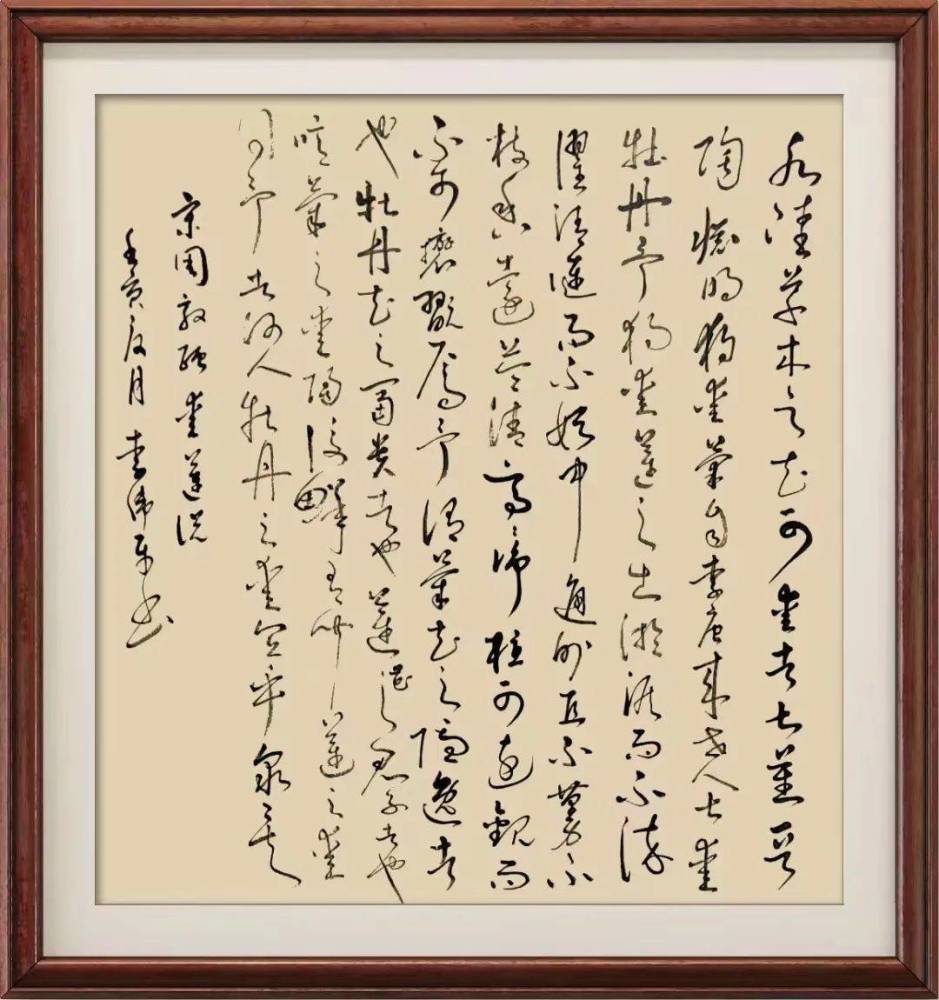 水陸草木之花可愛者甚蕃晉
陶淵明獨愛菊自李唐來世人甚愛
牡丹予獨愛蓮之出淤泥而不染
濯清漣而不妖中通外直不蔓不
枝香遠益清亭〻淨植可遠觀而
不可褻翫焉予謂菊花之隱逸者
也牡丹花之富貴者也蓮花之君子者也
噫菊之愛陶後鮮有聞蓮之愛
同予者何人牡丹之愛宜乎衆矣
宋周敦頤愛蓮說
壬寅夏月李偉書